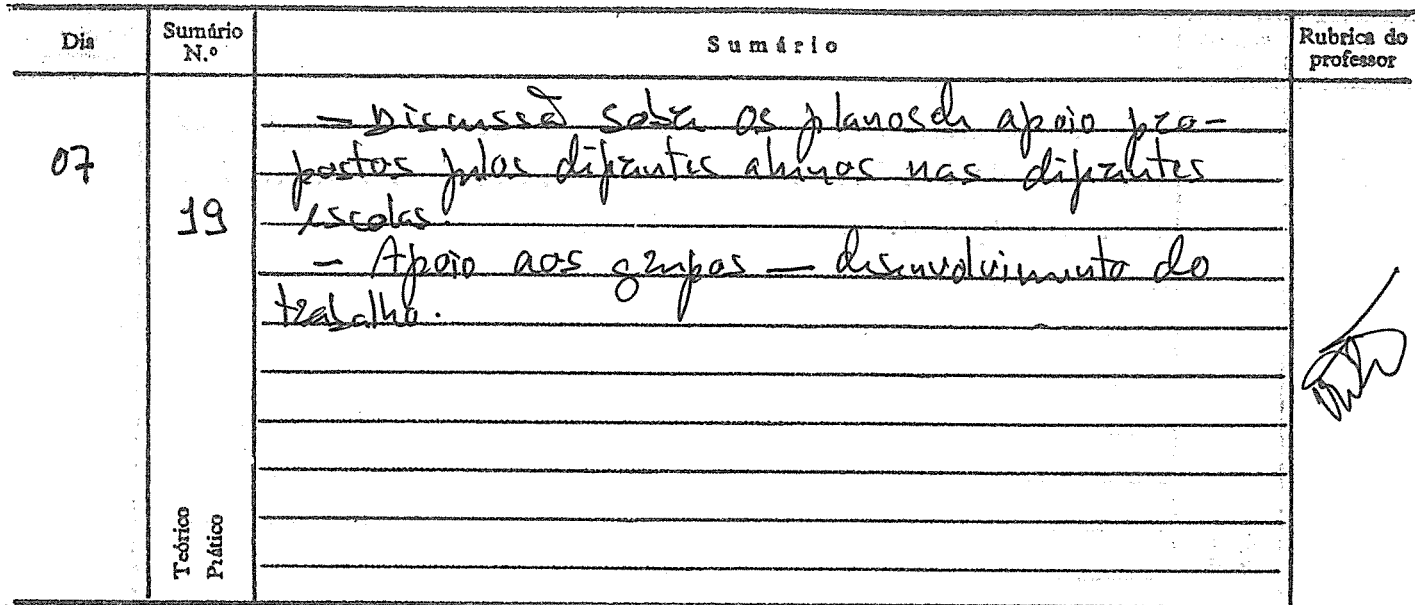 Dia
Sumário
N.º
Sumário
Rubrica do
professor
07
19
- Discussão sobre os planos de apoio pro-
postos pelos diferentes alunos nas diferentes
escolas.
- Apoio aos grupos - desenvolvimento do
trabalho.
Teórico
Prático